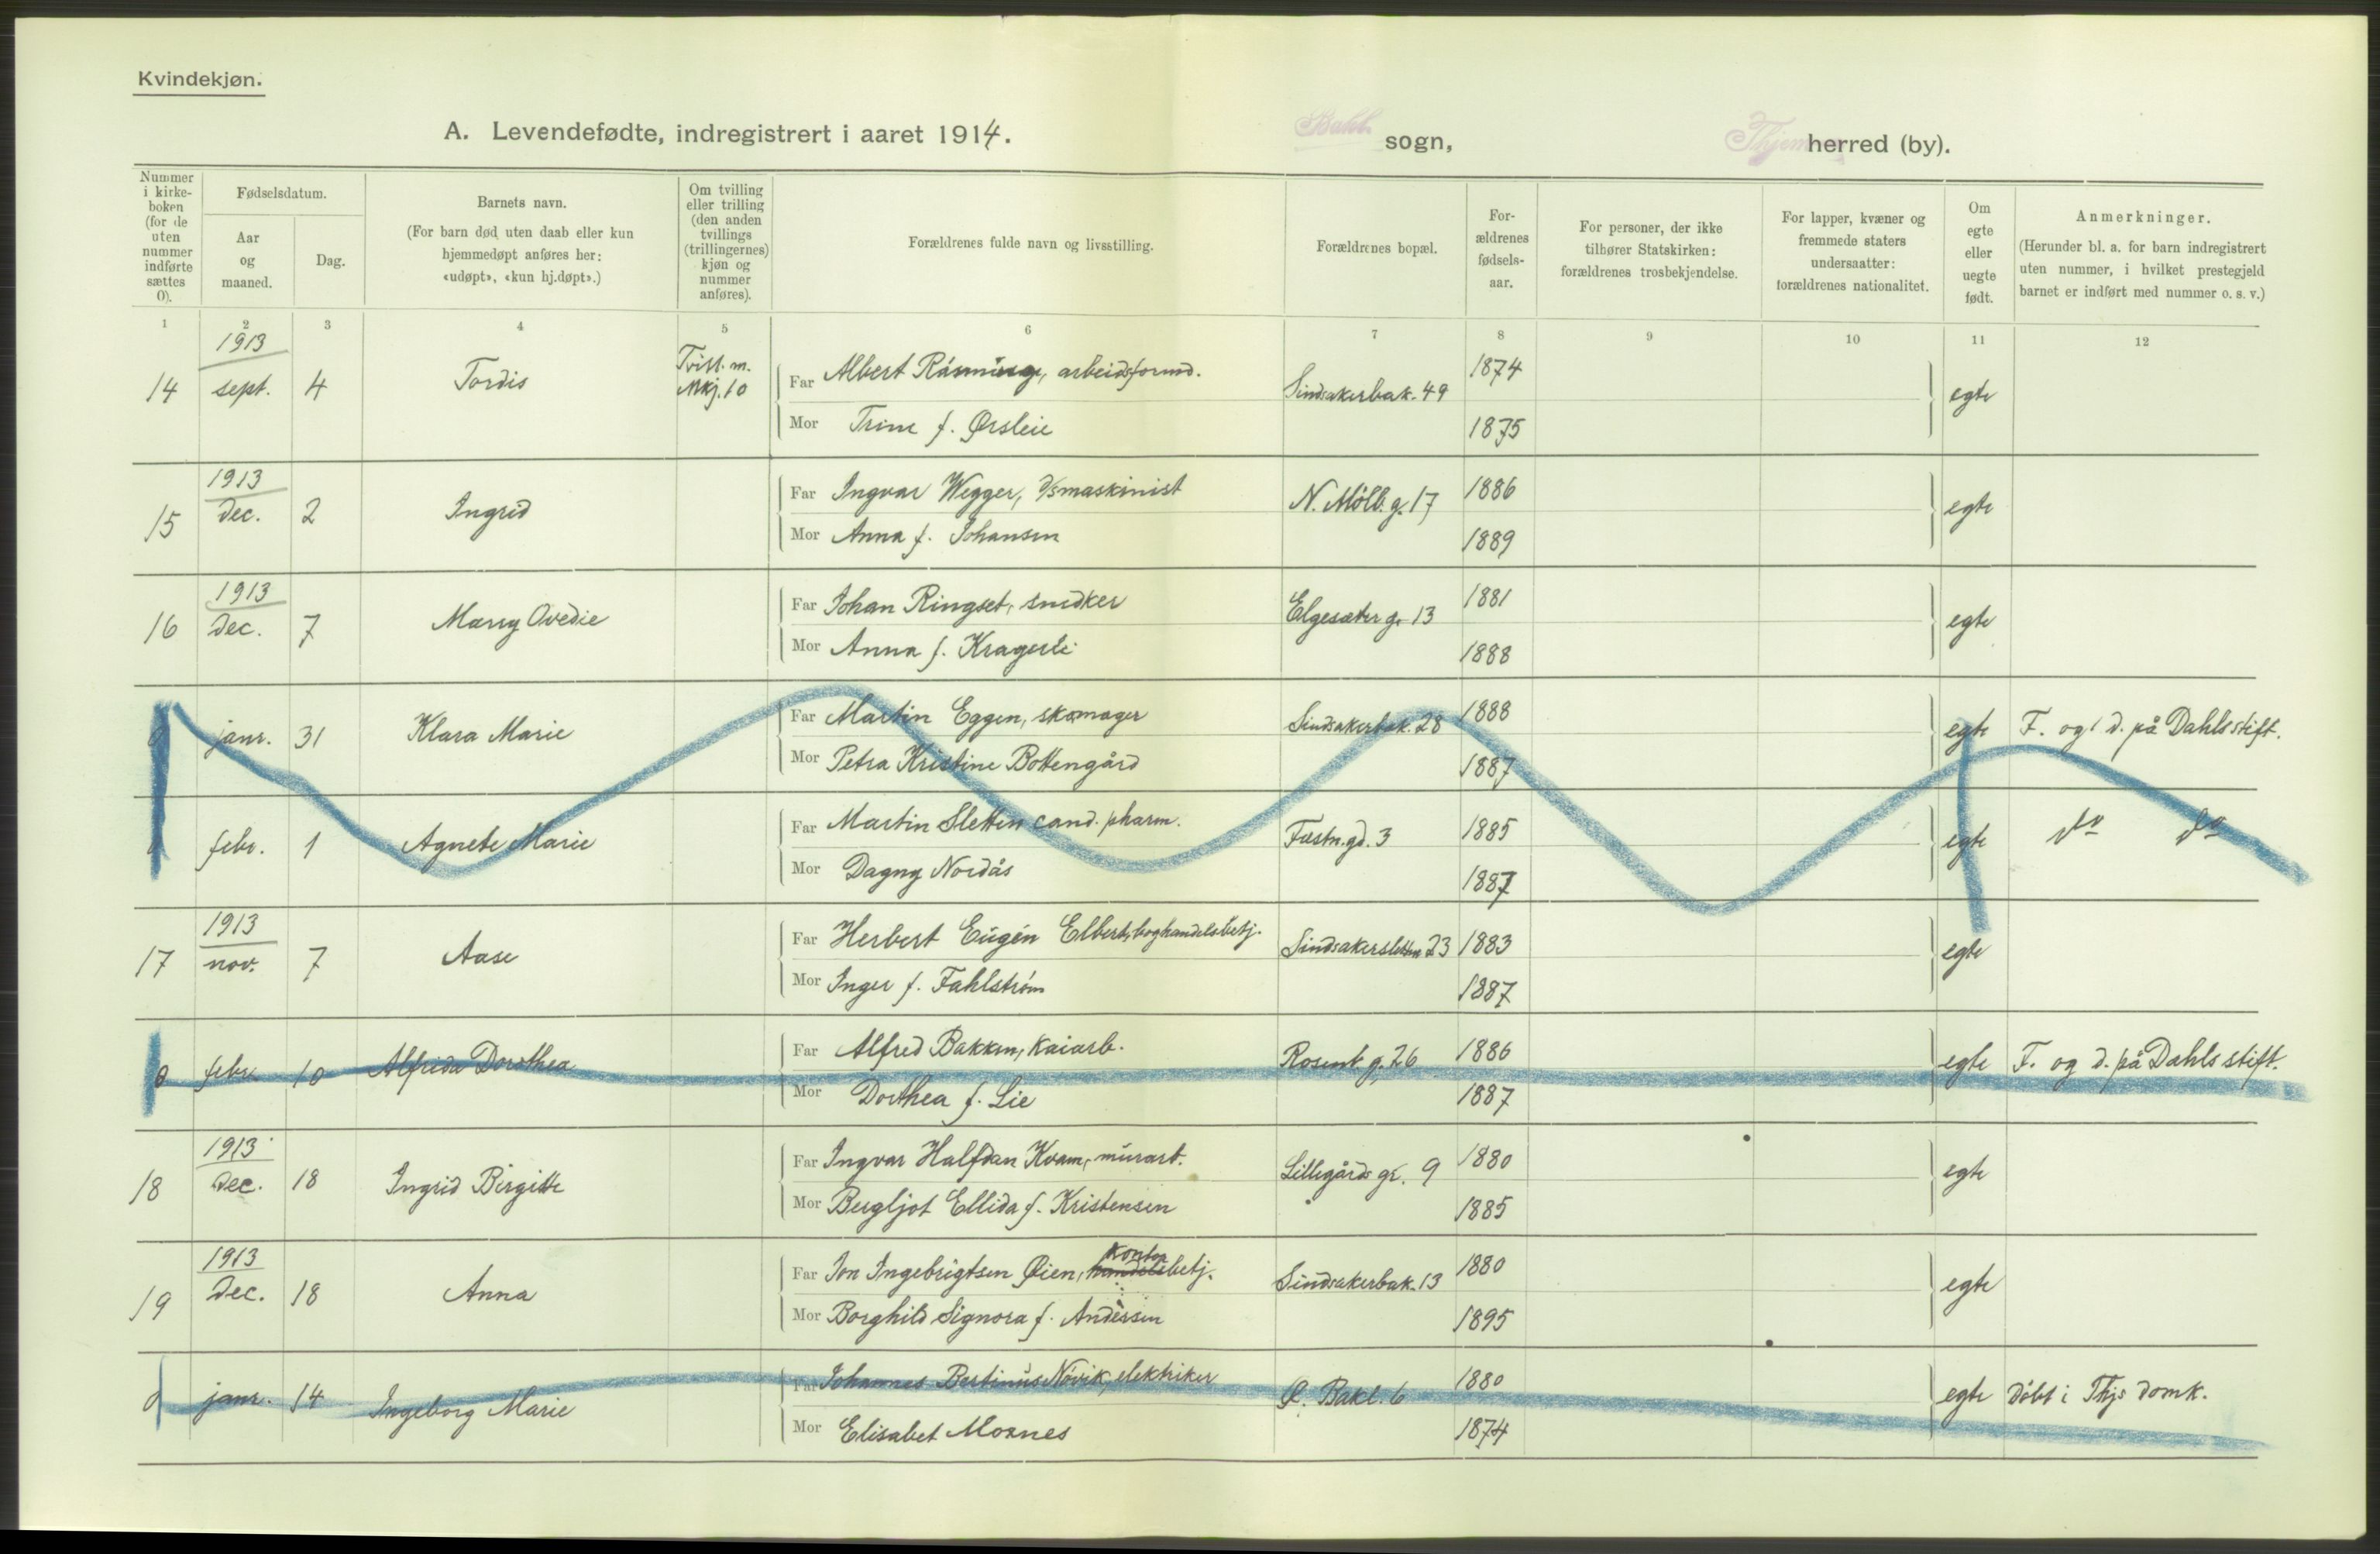 Kvindekjøn.
A. Levendefødte, indregistrert i aaret 1914.
Bakl. sogn,
Thjem herred (by).
Nummer i kirke-boken (for de uten nummer indførte sættes 0).
Fødselsdatum.
Aar og maaned.
Dag.
Barnets navn.
(For barn død uten daab eller kun hjemmedøpt anføres her: «udøpt», «kun hj.døpt».)
Om tvilling eller trilling (den anden tvillings (trillingernes) kjøn og nummer anføres).
Forældrenes fulde navn og livsstilling.
Forældrenes bopæl.
For-ældrenes fødsels-aar.
For personer, der ikke tilhører Statskirken: forældrenes trosbekjendelse.
For lapper, kvæner og fremmede staters undersaatter: forældrenes nationalitet.
Om egte eller uegte født.
Anmerkninger.
(Herunder bl. a. for barn indregistrert uten nummer, i hvilket prestegjeld barnet er indført med nummer o. s. v.)
1 2 3 4 5 6 7 8 9 10 11 12
14 1913 sept. 4 Tordis Tvill. m. Mkj. 10 Far Albert Rasmusen, arbeidsformd. Sindsakerbak. 49 1874 egte
Mor Trine f. Ørsleie 1875
15 1913 Dec. 2 Ingrid Far Ingvar Wegger, d/smaskinist N. Möllb. g. 17 1886 egte
Mor Anna f. Johansen 1889
16 1913 Dec. 7 Marry Ovedie Far Johan Ringset, snedker Elgesæter g. 13 1881 egte
Mor Anna f. Kragerli 1888
0 janr. 31 Klara Marie Far Martin Eggen, skomager Sindsakerbak. 28 1888 egte F. og d. på Dahls stift.
Mor Petra Kristine Bottengård 1887
0 febr. 1 Agnete Marie Far Martin Sletten cand. pharm. Fæstn.gd. 3 1885 egte do do
Mor Dagny Nordås 1887
17 1913 nov. 7 Aase Far Herbert Eugén Elbert, boghandelsbetj. Sindsakersletten 23 1883 egte
Mor Inger f. Fahlström 1887
0 febr. 10 Alfrida Dorothea Far Alfred Bakken, kaiarb. Rosenb. g. 26 1886 egte F. og d. på Dahls stift.
Mor Dorthea f. Lie 1887
18 1913 Dec. 18 Ingrid Birgitte Far Ingvar Halfdan Kvam, murarb. Lillegårds gt. 9 1880 egte
Mor Bergljot Ellida f. Kristensen 1885
19 1913 Dec. 18 Anna Far Jon Ingebrigtsen Øien, handelsbetj. kontor Sindsakerbak. 13 1880 egte
Mor Borghild Signora f. Andersen 1895
0 janr. 14 Ingeborg Marie Far Johannes Bertinus Növik, elektriker Ø. Bakl. 6 1880 egte Döbt i Thjs domk.
Mor Elisabet Moxnes 1874